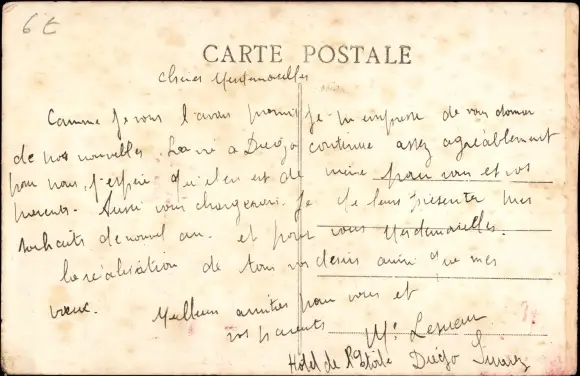 6 €
CARTE POSTALE
Chères Mesdemoiselles
Comme je vous l'avais promis je m'empresse de vous donner
de nos nouvelles. La vie à Diégo continue assez agréablement
pour nous, j'espère qu'il en est de même pour vous et vos
parents. Aussi vous chargerais-je de leurs présenter mes
souhaits de nouvel an. et pour vous Mesdemoiselles.
la réalisation de tous vos désirs ainsi que mes
vœux. Meilleures amitiés pour vous et
vos parents
Hôtel de l'Etoile Diégo Suarez